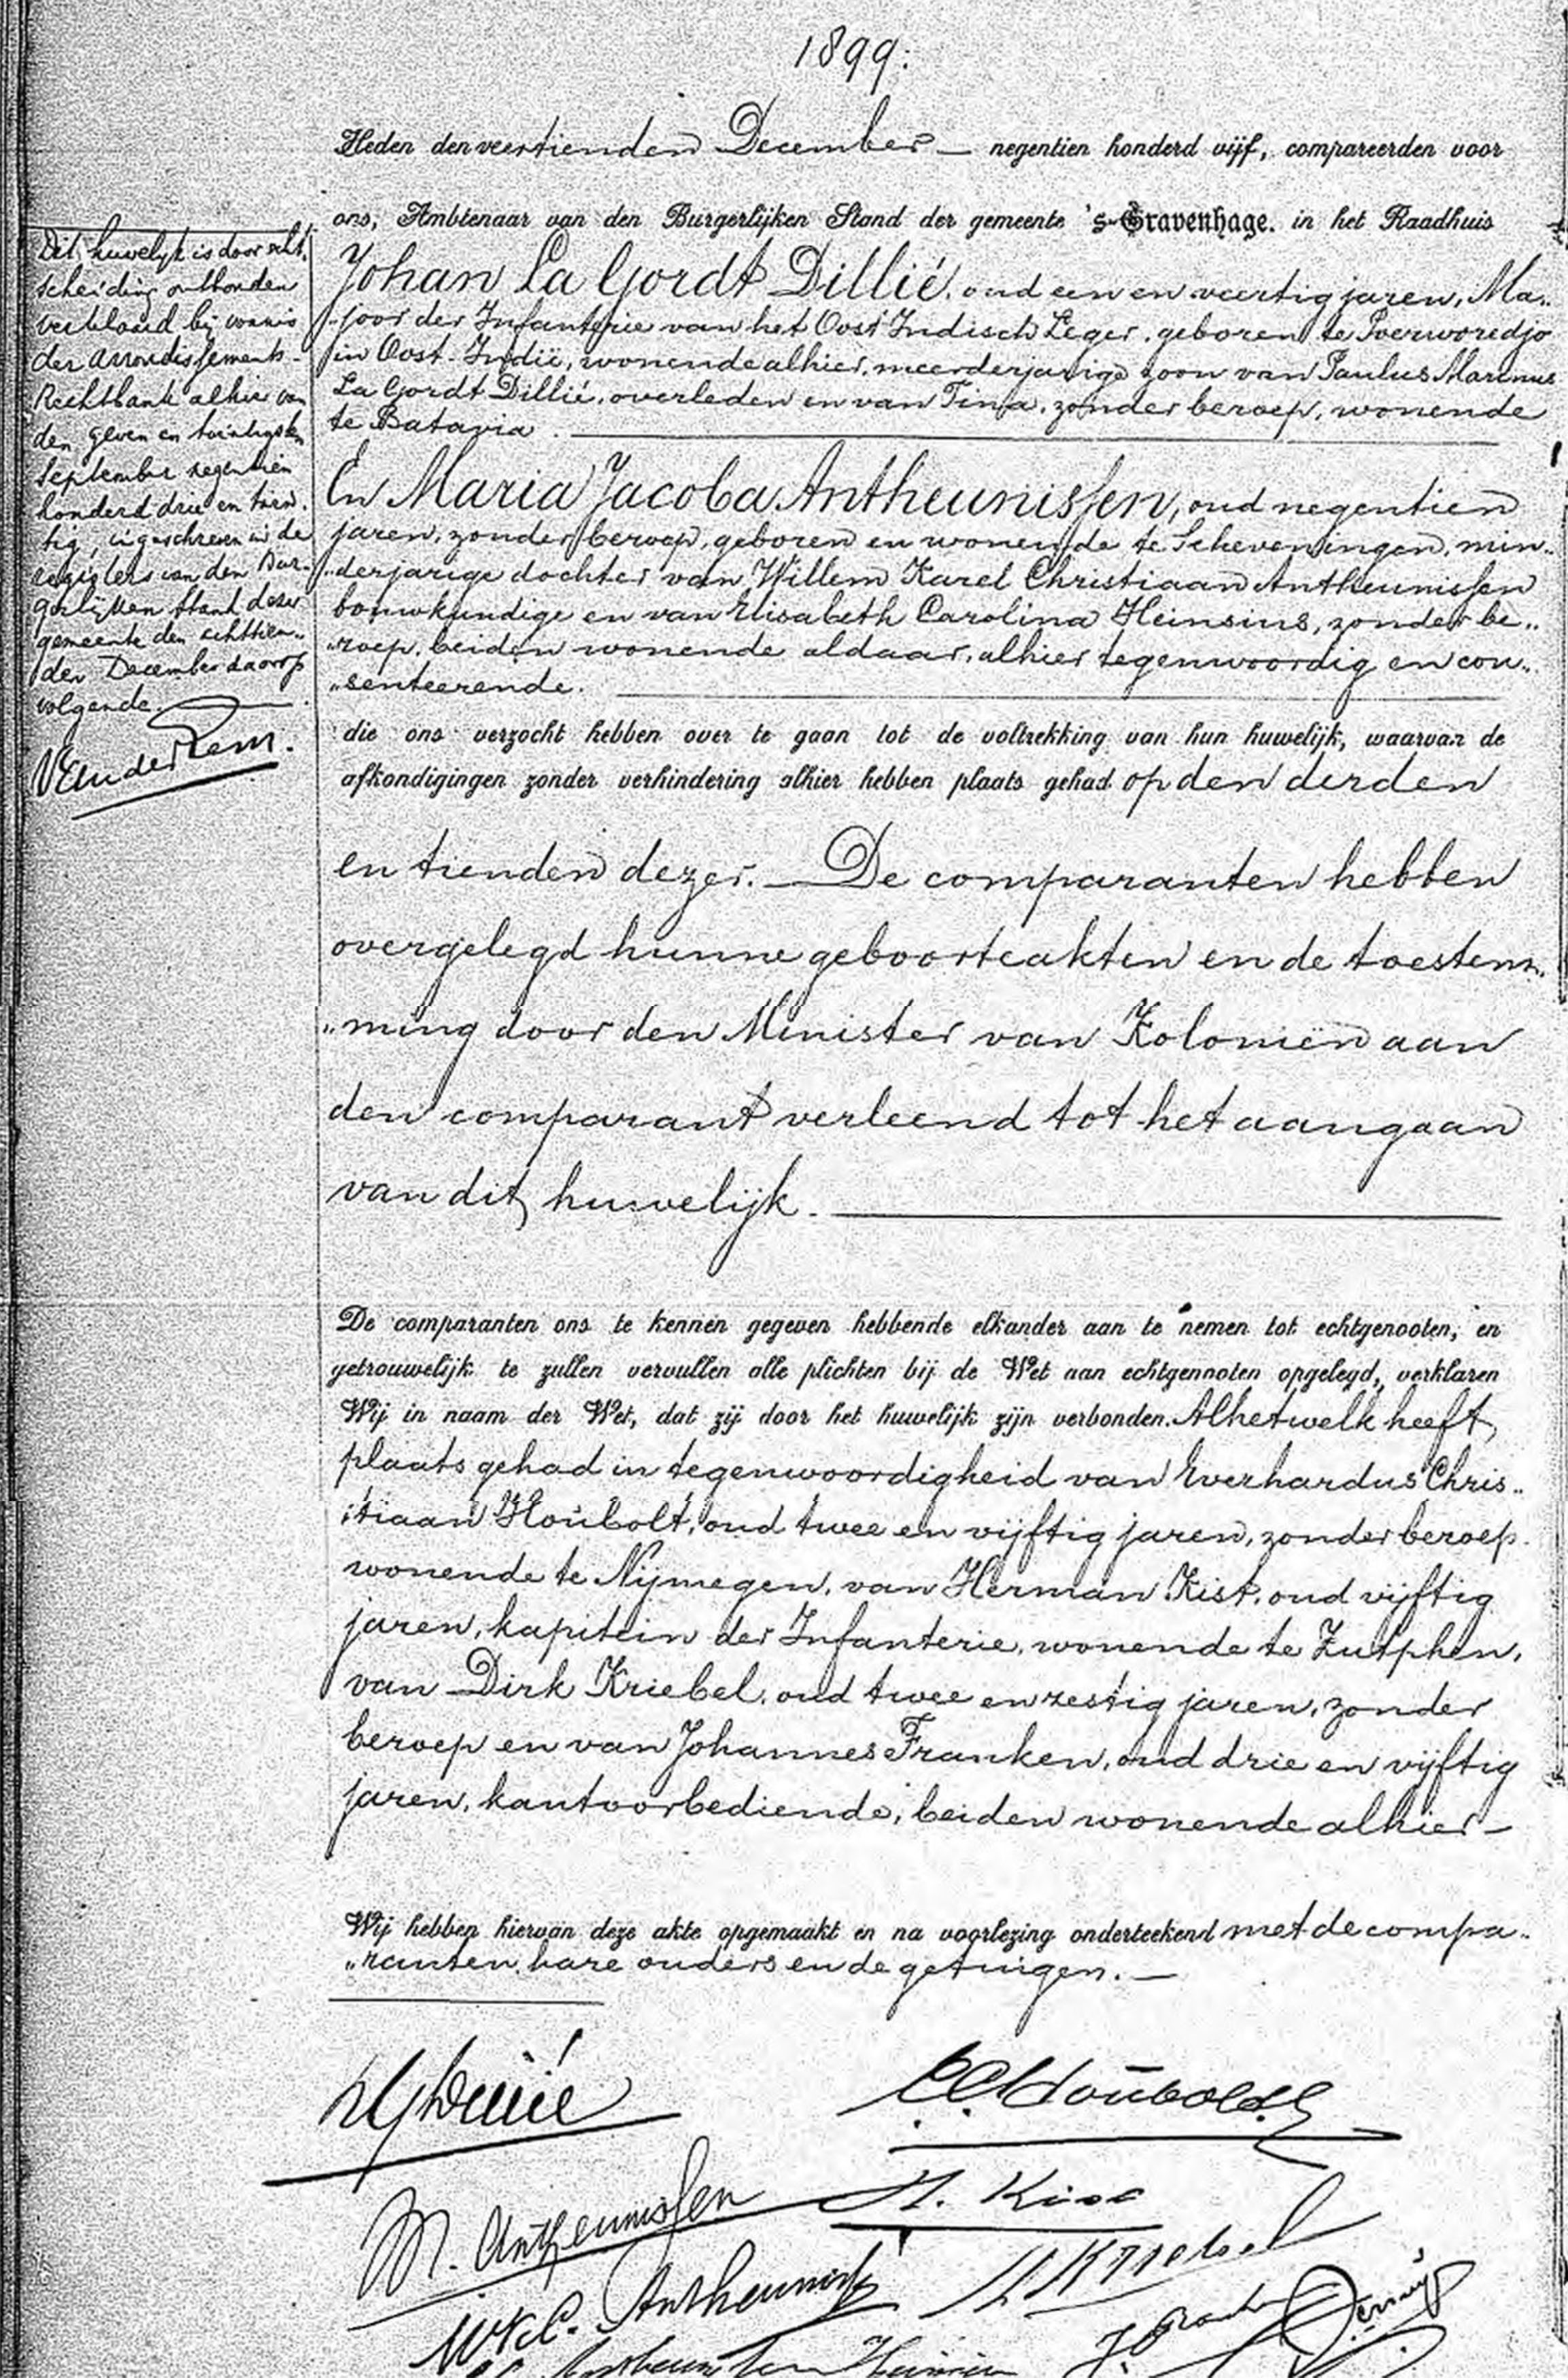 1899.
Heden den veertienden December — negentien honderd vijf, compareerden voor
ons, Ambtenaar van den Burgerlijken Stand der gemeente 's-Gravenhage. in het Raadhuis
Johan La Gordt Dillié, oud een en veertig jaren, Ma„
„joor der Infanterie van het Oost Indisch Leger, geboren te Poerworedjo
in Oost-Indië, wonende alhier, meerderjarige zoon van Paulus Marinus
La Gordt Dillié, overleden en van Tina, zonder beroep, wonende
te Batavia.
En Maria Jacoba Antheunissen, oud negentien
jaren, zonder beroep, geboren en wonende te Scheveningen, min„
„derjarige dochter van Willem Karel Christiaan Antheunissen
bouwkundige en van Elisabeth Carolina Heinsius, zonder be„
„roep, beiden wonende aldaar, alhier tegenwoordig en con„
„senteerende.
die ons verzocht hebben over te gaan tot de voltrekking van hun huwelijk, waarvan de
afkondigingen zonder verhindering alhier hebben plaats gehad op den derden
en tienden dezer. — De comparanten hebben
overgelegd hunne geboorteakten en de toestem„
„ming door den Minister van Koloniën aan
den comparant verleend tot het aangaan
van dit huwelijk.
De comparanten ons te kennen gegeven hebbende elkander aan te nemen tot echtgenooten, en
getrouwelijk te zullen vervullen alle plichten bij de Wet aan echtgenooten opgelegd, verklaren
Wij in naam der Wet, dat zij door het huwelijk zijn verbonden. Alhetwelk heeft
plaats gehad in tegenwoordigheid van Everhardus Chris„
„tiaan Houbolt, oud twee en vijftig jaren, zonder beroep
wonende te Nijmegen, van Herman Kist, oud vijftig
jaren, kapitein der Infanterie, wonende te Zutphen,
van Dirk Kriebel, oud twee en zestig jaren, zonder
beroep en van Johannes Franken, oud drie en vijftig
jaren, kantoorbediende, beiden wonende alhier —
Wij hebben hiervan deze akte opgemaakt en na voorlezing onderteekend met de compa„
„ranten, hare ouders en de getuigen. —
Dit huwelijk is door echt„
scheiding ontbonden
verklaard bij vonnis
der Arrondissements-
Rechtbank alhier van
den zeven en twintigsten
September negentien
honderd drie en twin„
tig, ingeschreven in de
registers van den Bur„
gerlijken Stand dezer
gemeente den achttien„
den December daarop
volgende.
Dillié
E.C. Houbolt
M. Antheunissen
H. Kist
W.K.C. Antheunissen
Kriebel